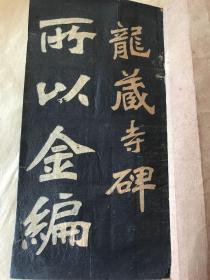 龍藏寺碑
所以金編